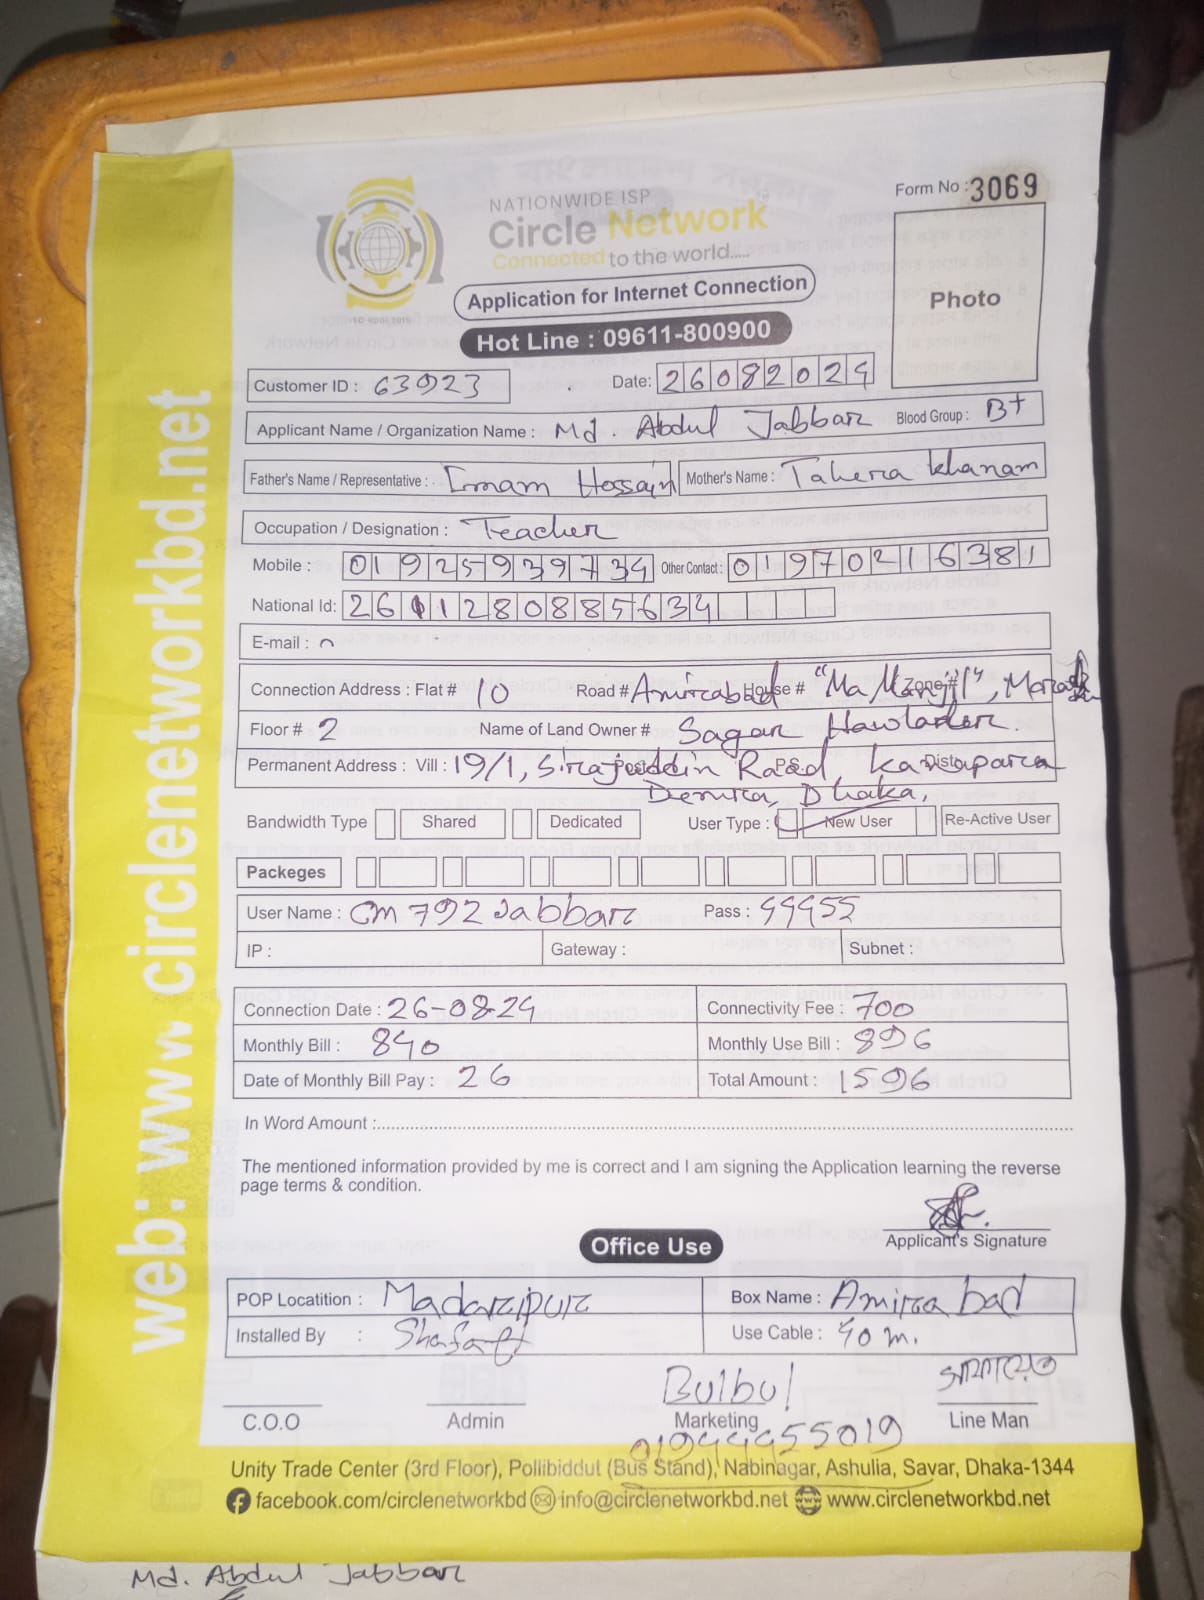 NATIONWIDE ISP
Circle Network
Connected to the world.....
Form No : 3069
Photo
Application for Internet Connection
Hot Line : 09611-800900
Customer ID : 63923
Date: 26082024
Applicant Name / Organization Name : Md. Abdul Jabbar Blood Group : B+
Father's Name / Representative : Imam Hossain Mother's Name : Tahera khanam
Occupation / Designation : Teacher
Mobile : 01925939734 Other Contact : 01970216381
National Id: 2611280885634
E-mail :
Connection Address : Flat # 10 Road # Amirabad House # "Ma Manjil", Zone #
Floor # 2 Name of Land Owner # Sagar Hawlader.
Permanent Address : Vill : 19/1, Sirajuddin Road, P.S: Dist:
Demra, Dhaka,
Bandwidth Type Shared Dedicated User Type : New User Re-Active User
Packeges
User Name : CM792Jabbar Pass : 44455
IP : Gateway : Subnet :
Connection Date : 26-08-24 Connectivity Fee : 700
Monthly Bill : 840 Monthly Use Bill : 896
Date of Monthly Bill Pay : 26 Total Amount : 1596
In Word Amount :
The mentioned information provided by me is correct and I am signing the Application learning the reverse
page terms & condition.
Applicant's Signature
Office Use
POP Locatition : Madaripur Box Name : Amirabad
Installed By : Use Cable : 40 m.
Bulbul
C.O.O Admin Marketing Line Man
01944455019
Unity Trade Center (3rd Floor), Pollibiddut (Bus Stand), Nabinagar, Ashulia, Savar, Dhaka-1344
facebook.com/circlenetworkbd info@circlenetworkbd.net www.circlenetworkbd.net
web: www.circlenetworkbd.net
Md. Abdul Jabbar